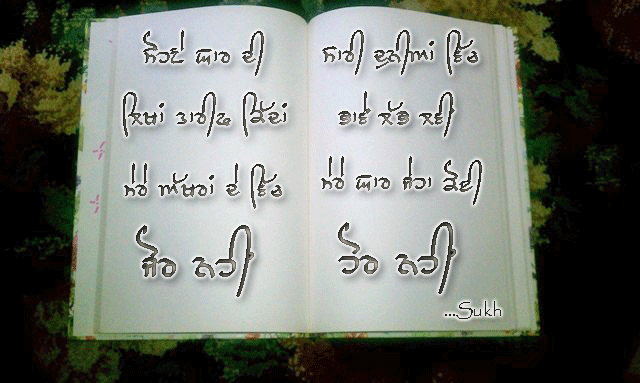 ਸੋਹਣੇ ਯਾਰ ਦੀ
ਲਿਖਾਂ ਤਾਰੀਫ ਕਿੱਦਾਂ
ਮੇਰੇ ਅੱਖਰਾਂ ਦੇ ਵਿੱਚ
ਜੋਰ ਨਹੀ
ਸਾਰੀ ਦੁਨੀਆਂ ਵਿੱਚ
ਭਾਵੇ ਲੱਭ ਲਵੀ
ਮੇਰੇ ਯਾਰ ਜੇਹਾ ਕੋਈ
ਹੋਰ ਨਹੀ
...Sukh